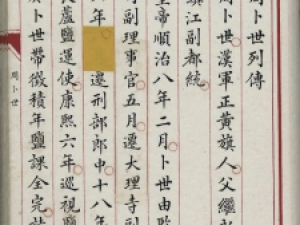 周卜世列傳
周卜世漢軍正黃旗人父繼
鎮江副都統
皇帝順治八年二月卜世由
副理事官五月遷大理寺副
年
遷刑部郎中十八年
長蘆鹽運使康熙六年巡視鹽
卜世帶徵積年鹽課全完
周卜世